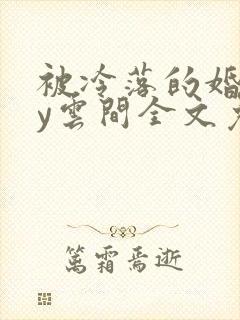 被冷落的婚
y雲間全文
篤霜焉逝